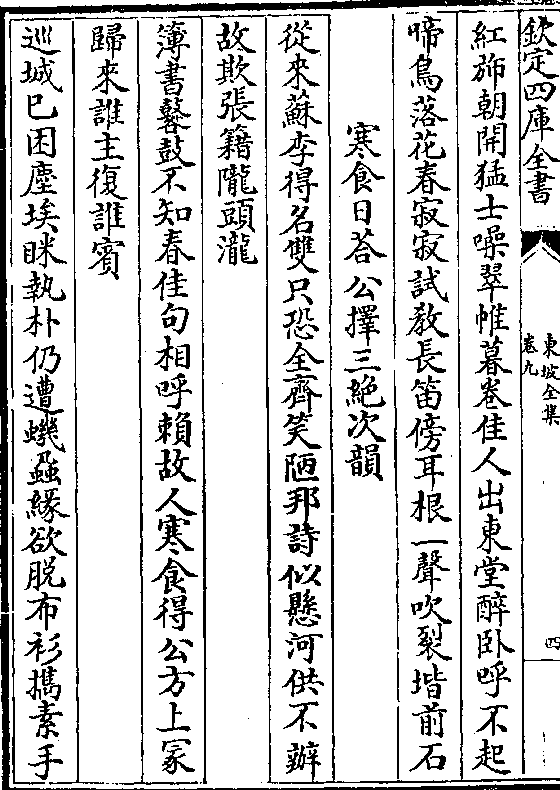 欽定四庫全書
東坡全集
卷九
四
紅斾朝開猛士噪翠帷暮卷佳人出東堂醉卧呼不起
啼鳥落花春寂寂試教長笛傍耳根一聲吹裂堦前石
寒食日荅公擇三絶次韻
從來蘇李得名雙只恐全齊笑陋邦詩似懸河供不辦
故欺張籍隴頭瀧
簿書鼛鼓不知春佳句相呼賴故人寒食得公方上冢
歸來誰主復誰賓
巡城已困塵埃眯執朴仍遭蟣蝨緣欲脱布衫攜素手